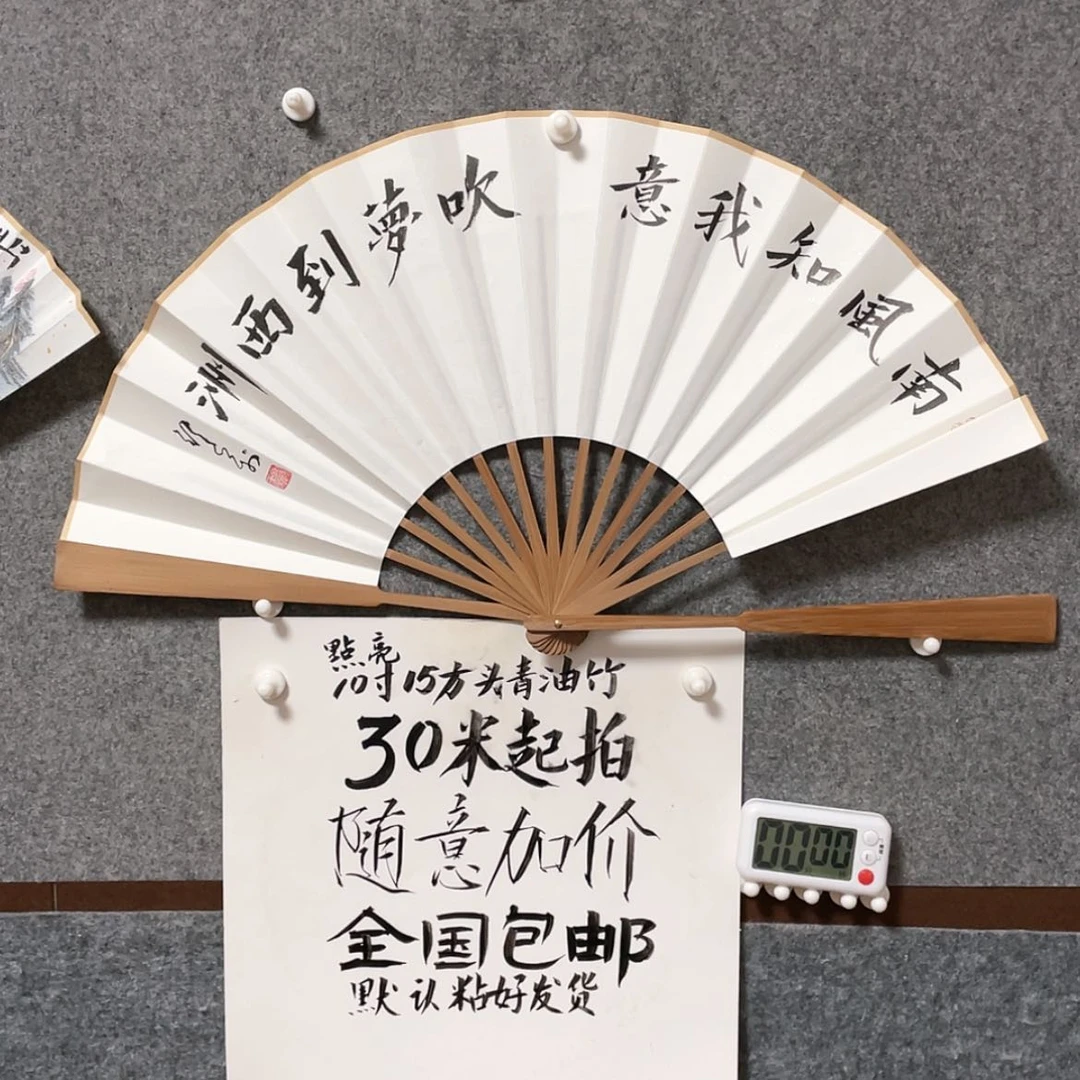 南風知我意
吹夢到西洲
點亮
10寸15方头青油竹
30米起拍
随意加价
全国包邮
默认粘好发货
0000